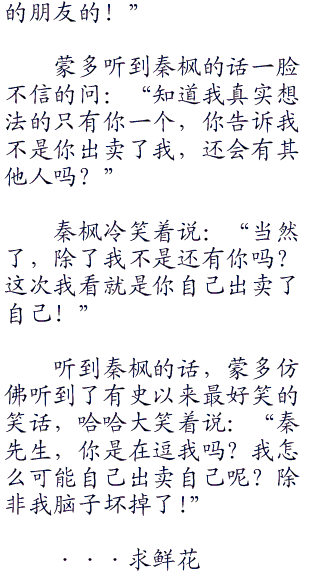 的朋友的！”
蒙多听到秦枫的话一脸
不信的问：“知道我真实想
法的只有你一个，你告诉我
不是你出卖了我，还会有其
他人吗？”
秦枫冷笑着说：“当然
了，除了我不是还有你吗？
这次我看就是你自己出卖了
自己！”
听到秦枫的话，蒙多仿
佛听到了有史以来最好笑的
笑话，哈哈大笑着说：“秦
先生，你是在逗我吗？我怎
么可能自己出卖自己呢？除
非我脑子坏掉了!”
···求鲜花